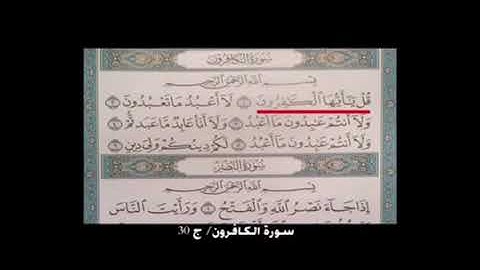 سُورَةُ الكَافِرُونَ
بِسْمِ اللَّهِ الرَّحْمَنِ الرَّحِيمِ
قُلْ يَٰٓأَيُّهَا ٱلْكَٰفِرُونَ ١ لَآ أَعْبُدُ مَا تَعْبُدُونَ ٢
وَلَآ أَنتُمْ عَٰبِدُونَ مَآ أَعْبُدُ ٣ وَلَآ أَنَا۠ عَابِدٌ مَّا عَبَدتُّمْ ٤
وَلَآ أَنتُمْ عَٰبِدُونَ مَآ أَعْبُدُ ٥ لَكُمْ دِينُكُمْ وَلِىَ دِينِ ٦
سُورَةُ النَّصْرِ
بِسْمِ اللَّهِ الرَّحْمَنِ الرَّحِيمِ
إِذَا جَآءَ نَصْرُ ٱللَّهِ وَٱلْفَتْحُ ١ وَرَأَيْتَ ٱلنَّاسَ
سورة الكافرون/ ج 30